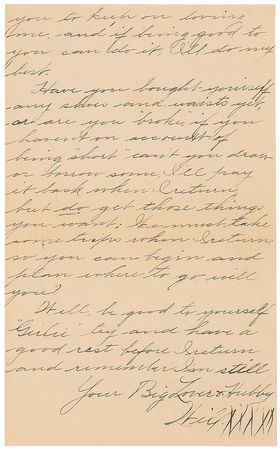 you to keep on loving
me, and if being good to
you can do it, I'll do my
best.
Have you bought yourself
any shoes and waists yet,
or are you "broke", if you
haven't on account of
being "short" can't you draw
or borrow some; I'll pay
it back when I return,
but do get those things
you want; We must take
some trips when I return
so you can begin and
plan where to go, will
you?
Well, be good to yourself
"Girlie" try and have a
good rest before I return
and remember I'm still
Your Big Lover & Hubby
XXXXX